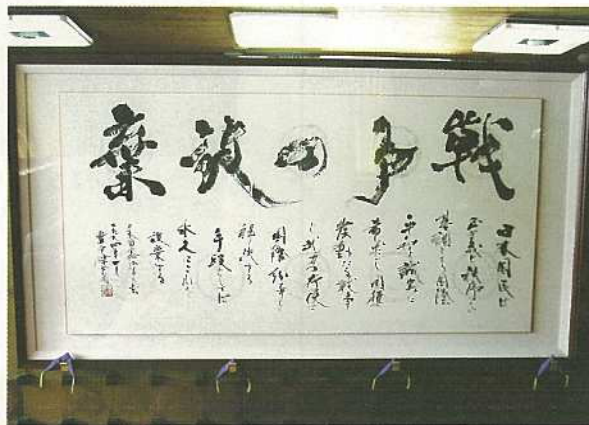 戦争の放棄
日本国民は
正義と秩序を
基調とする国際
平和を誠実に
希求し国権の
発動たる戦争
と武力の行使は
国際紛争を
解決する
手段としては
永久にこれを
放棄する